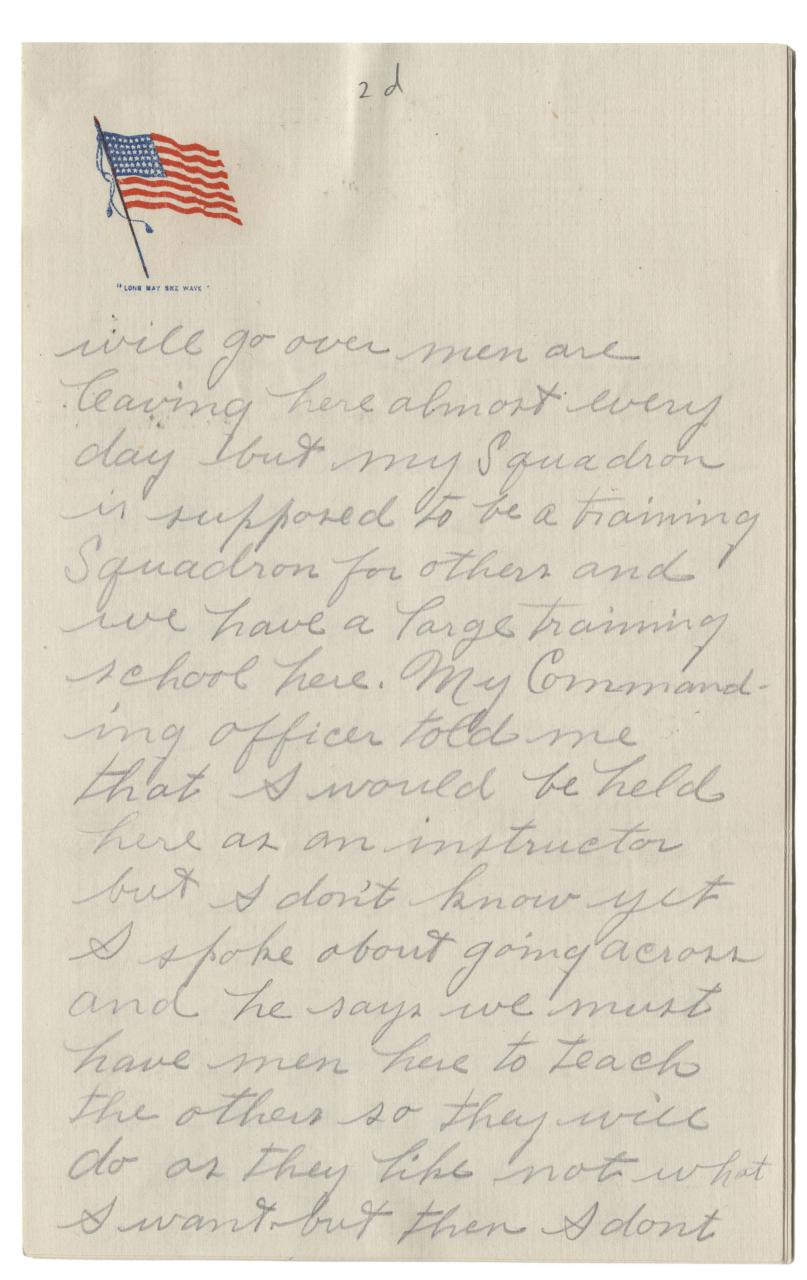 2d
"LONG MAY SHE WAVE"
will go over men are
leaving here almost every
day but my Squadron
is supposed to be a training
Squadron for others and
we have a large training
school here. My Command-
ing officer told me
that I would be held
here as an instructor
but I don't know yet
I spoke about going across
and he says we must
have men here to teach
the others so they will
do as they like not what
I want but then I dont